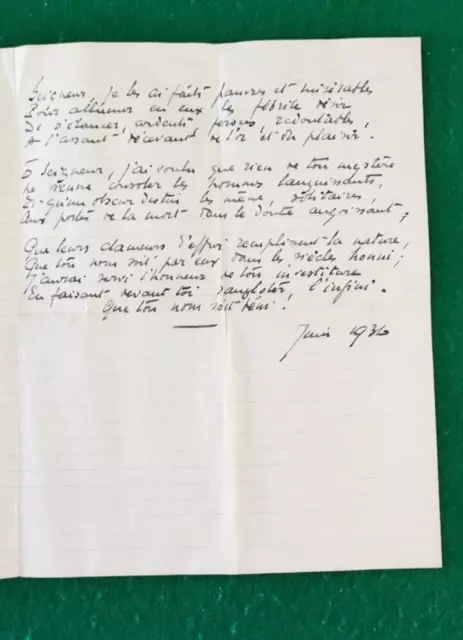 Seigneur, je les ai faits pauvres et misérables
Pour allumer en eux le fébrile désir
De s'élancer, ardents, féroces, redoutables,
A l'assaut décevant de l'or et du plaisir.
O Seigneur, j'ai voulu que rien de ton mystère
Ne vienne consoler les hommes languissants,
Et qu'un obscur destin les mène, solitaires,
Aux portes de la mort dans le doute angoissant;
Que leurs clameurs d'effroi remplissent la nature,
Que ton nom soit par eux dans les siècles honni;
J'aurai servi l'honneur de ton investiture
En faisant devant toi sangloter, l'infini.
Que ton nom soit béni.
Juin 1936